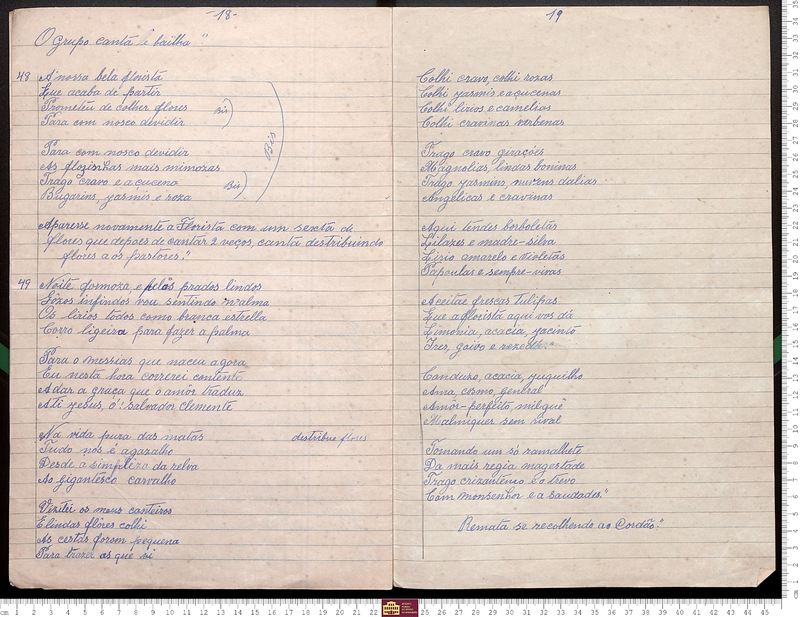 -18-
O grupo canta e bailha"
48 A nossa bela florista
Que acaba de partir
Prometeu de colher flores
Para com nosco devidir
Bis
Para com nosco devidir
As florsinhas mais mimozas
Trago cravo e açucena
Bugarins, yasmis e roza
Bis
Bis
Aparesse novamente a Florista com um sexta de
flores que depois de cantar 2 veços, canta destribuindo
flores a os pastores."
49 Noite formoza, e pelos prados lindos
Gozos infindos vou sentindo n'alma
Os lirios todos como branca estrella
Corro ligeira para fazer a palma
Para o Messias que naceu agora
Eu nesta hora correrei contente
A dar a graça que o amôr traduz
A ti Yesus, ó! Salvador Clemente
Na vida pura das matas distribue flores
Tudo nos é agazalho
Desde a simpleza da relva
Ao gigantesco carvalho
Vizitei os meus canteiros
E lindas flôres colhi
As cestas foram pequena
Para trazer as que vi
19
Colhi cravo, colhi rozas
Colhi yasmis e açucenas
Colhi lirios e camelias
Colhi cravinas verbenas
Trago cravo girações
Magnolias, lindas boninas
Trago yasmins, dalias
Angelicas e cravinas
Aqui tendes borboletas
Lilazes e madre-silva
Lirio amarelo e violetas
Papoulas e sempre-vivas
Aceitae frescas Tulipas
Que a florista aqui vos dá
Limonia, acacia, yacinto
Ires, goivo e rezedá."
Conduzo, acacia, yuquilho
Ama, cosmo, general
Amôr-perfeito, milguê
Malmiquer sem rival
Tomando um só ramalhete
Da mais regia magestade
Trago crizantemo e o trevo
Com monsenhor e a saudades."
Remata se recolhendo ao Cordão."